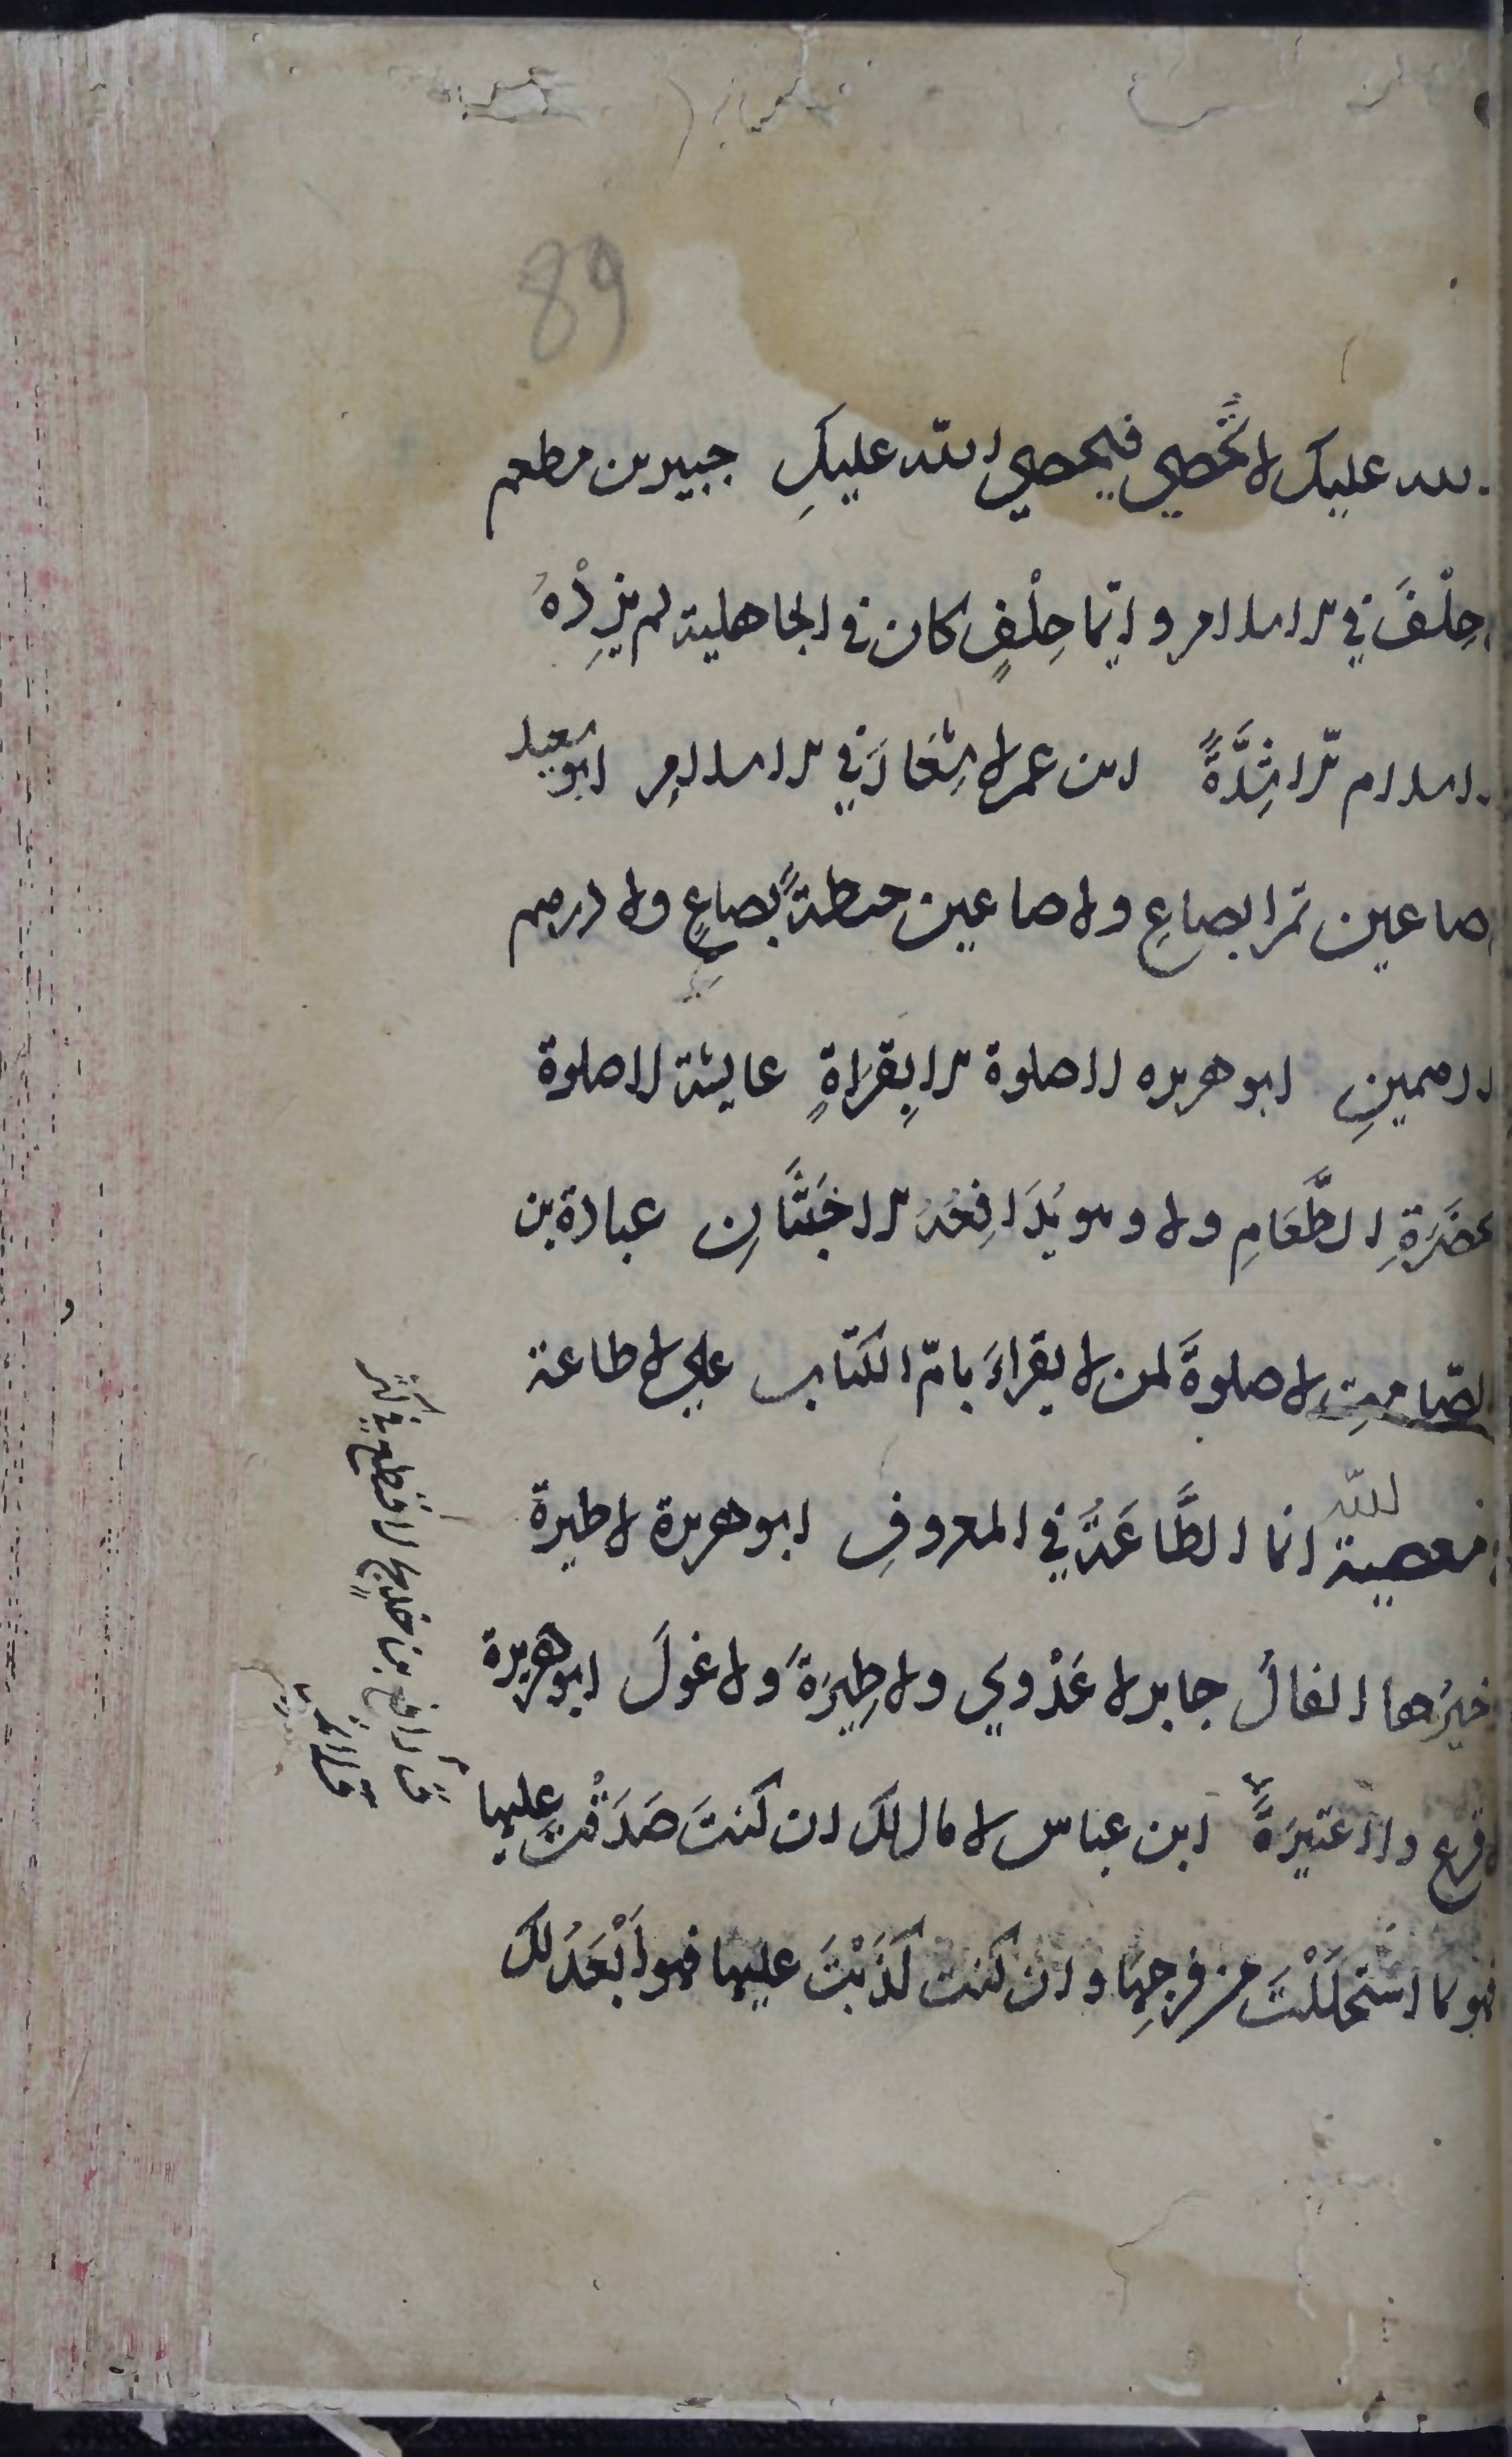 89
الله عليك لا تُحصي فيحصي الله عليكِ جبير بن مطعم
حِلْفَ في الاسلام وايّما حِلْفٍ كان في الجاهلية لم يزِدْهُ
الاسلام الّا شِدَّةً ابن عمر لا شِغَارَ في الاسلامِ ابو سعيد
صاعين تمرا بصاعِ ولا صاعين حنطةً بصاعٍ ولا درهم
درهمينِ ابو هريره لا صلوة الا بِقرَاةٍ عايشة لا صلوة
بحضَرَةِ الطَّعَامِ ولا وهو يُدَافِعُهُ الاخبَثَانِ عبادة بن
الصّامتِ لا صلوةَ لمن لا يقراءَ بامّ الكتاب علي لا طاعة
معصية لله انما الطَّاعَةُ في المعروفِ ابو هريرة لا طيرة
خيرُها الفالُ جابر لا عَدْوي ولا طِيَرَةَ ولا غولَ ابو هريرة
لا فرع ولا عتيرَةَ ابن عباس لا مال لك ان كنتَ صَدَقْتَ عليها
فهو بما استحلَلْتَ من فرجِها وان كنت كَذَبْتَ عليها فهو اَبْعَدُ لك
رافع بن خديج لا قطع في ثمر